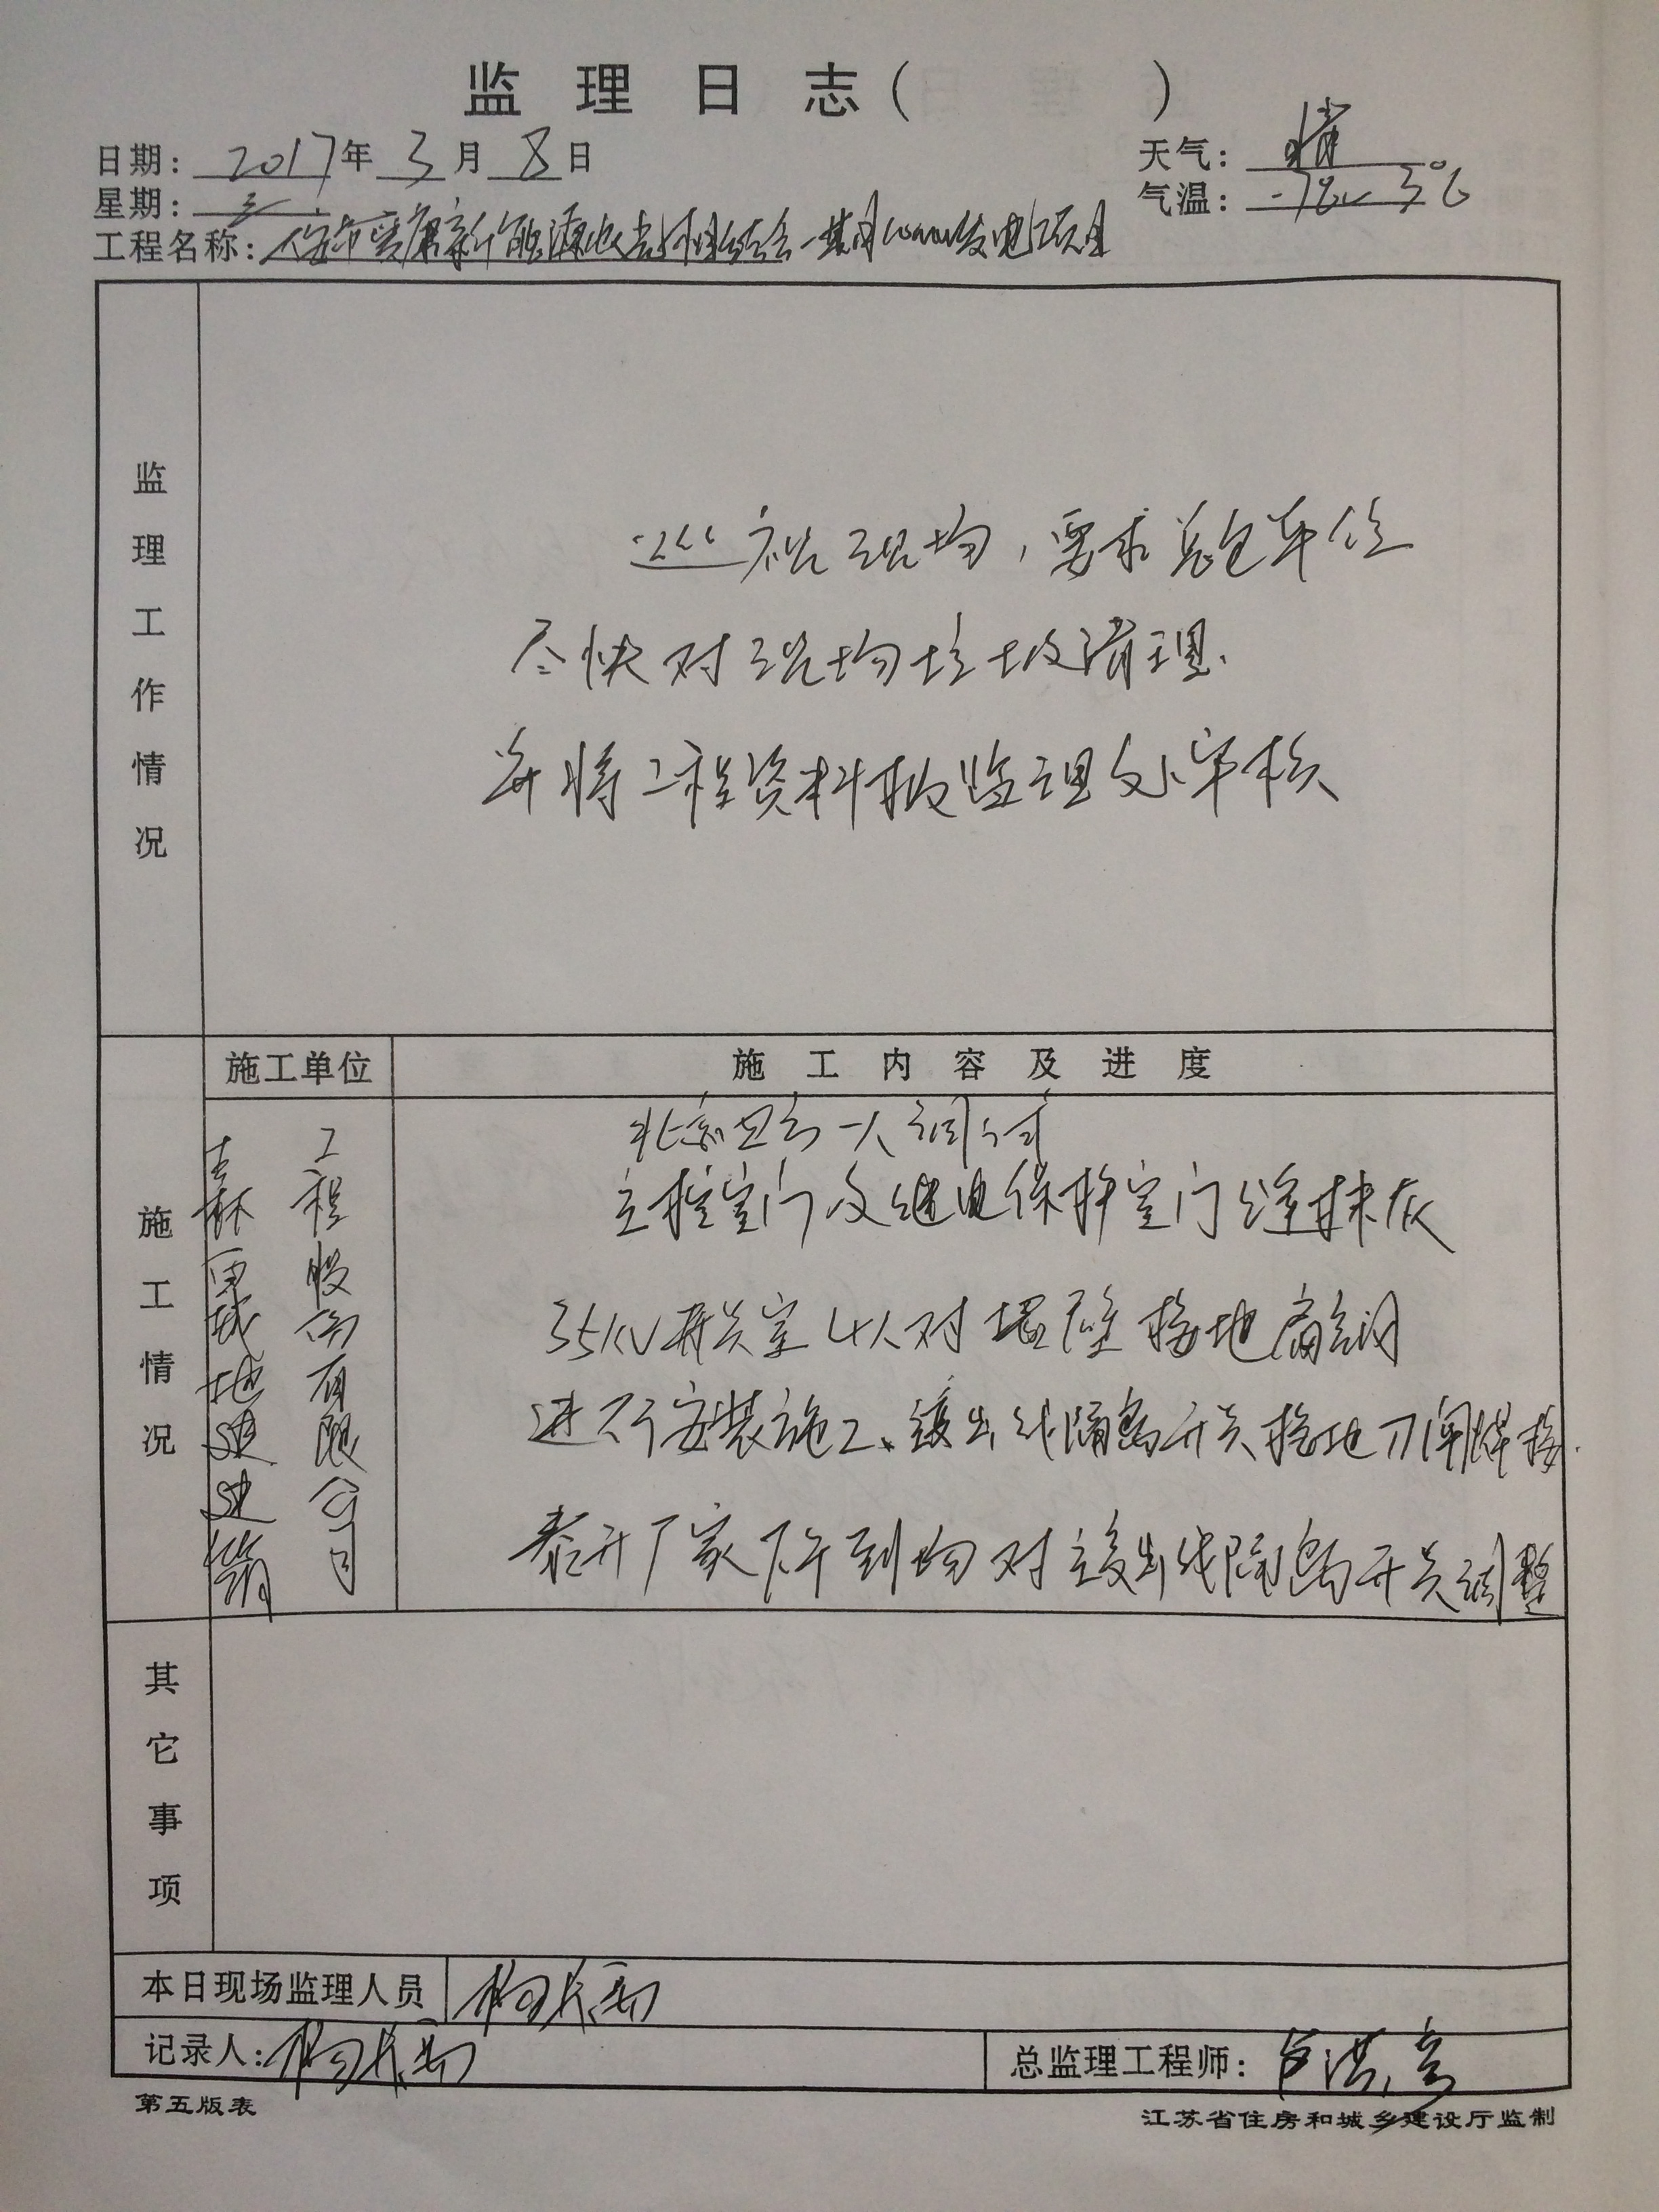 监理日志（ ）
日期：2017年3月8日
天气：晴
星期：三
气温：-7℃~3℃
工程名称：新能源 结合一期 发电项目
监理工作情况
巡视现场，要求总包单位
尽快对现场垃圾清理.
并将工程资料报监理处审核
施工情况
施工单位
施工内容及进度
森 城地 建筑
工程股份有限公司
北京 一人调试
主控室门及继电保护室门缝抹灰
35KV开关室4人对 接地扁钢
进行安装施工、 出线隔离开关接地刀闸焊接.
泰开厂家下午到场对 出线隔离开关调整
其它事项
本日现场监理人员 杨
记录人：杨
总监理工程师：卢洪
第五版表
江苏省住房和城乡建设厅监制